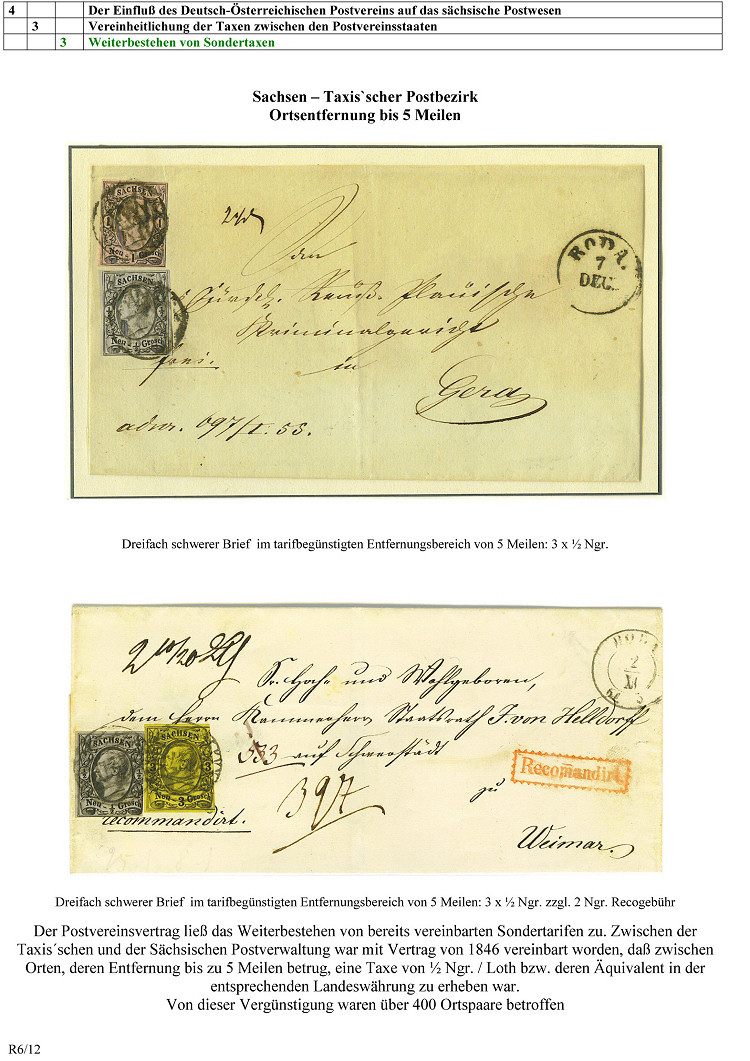 4 Der Einfluß des Deutsch-Österreichischen Postvereins auf das sächsische Postwesen
3 Vereinheitlichung der Taxen zwischen den Postvereinsstaaten
3 Weiterbestehen von Sondertaxen
Sachsen – Taxis`scher Postbezirk
Ortsentfernung bis 5 Meilen
SACHSEN
1 1
Neu - 1 Grosch
SACHSEN
½ ½
Neu - ½ Grosch
RODA.
7
DEC.
Fürstl. Reuß. Plauische
Kriminalgericht
frei. in
Gera
Dreifach schwerer Brief im tarifbegünstigten Entfernungsbereich von 5 Meilen: 3 x ½ Ngr.
RODA
2
XI
Sr. Hoch und Wohlgeboren,
dem Herrn Kammerherrn Staatsrath J. von Helldorff
533 auf Schwerstädt
SACHSEN
Neu - ½ Grosch
SACHSEN
3 3
Neu - 3 Grosch
Recomandirt
397
zu
recommandirt.
Weimar.
Dreifach schwerer Brief im tarifbegünstigten Entfernungsbereich von 5 Meilen: 3 x ½ Ngr. zzgl. 2 Ngr. Recogebühr
Der Postvereinsvertrag ließ das Weiterbestehen von bereits vereinbarten Sondertarifen zu. Zwischen der
Taxis´schen und der Sächsischen Postverwaltung war mit Vertrag von 1846 vereinbart worden, daß zwischen
Orten, deren Entfernung bis zu 5 Meilen betrug, eine Taxe von ½ Ngr. / Loth bzw. deren Äquivalent in der
entsprechenden Landeswährung zu erheben war.
Von dieser Vergünstigung waren über 400 Ortspaare betroffen
R6/12